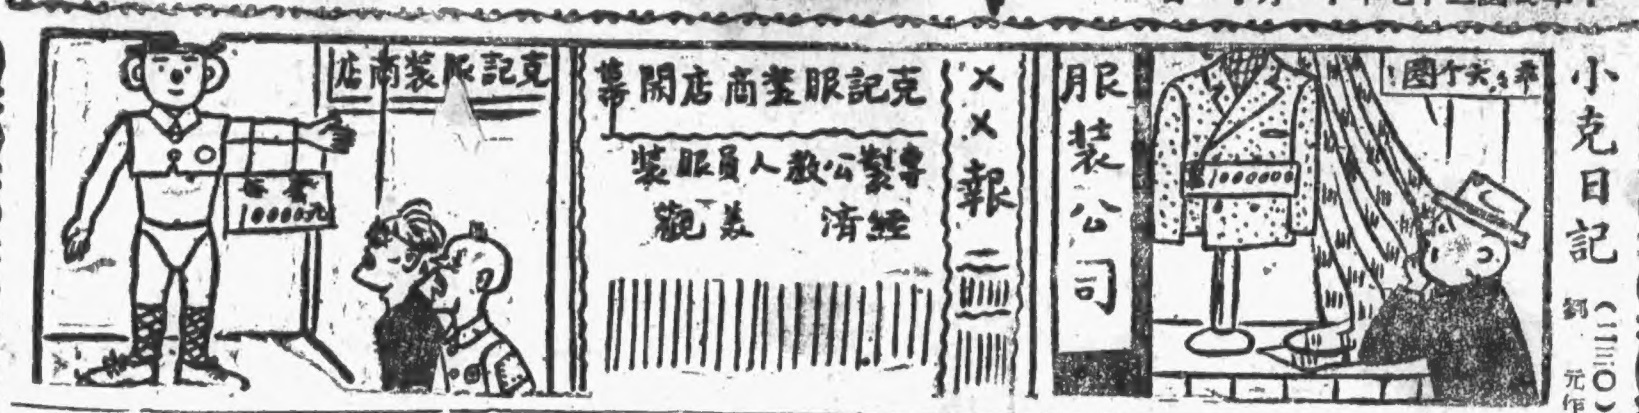 小克日記
(一二三〇)
元作
服裝公司
1000000
××報
克記服裝商店開幕
專製公教人員服裝
經濟 美觀
克記服裝商店
10000元